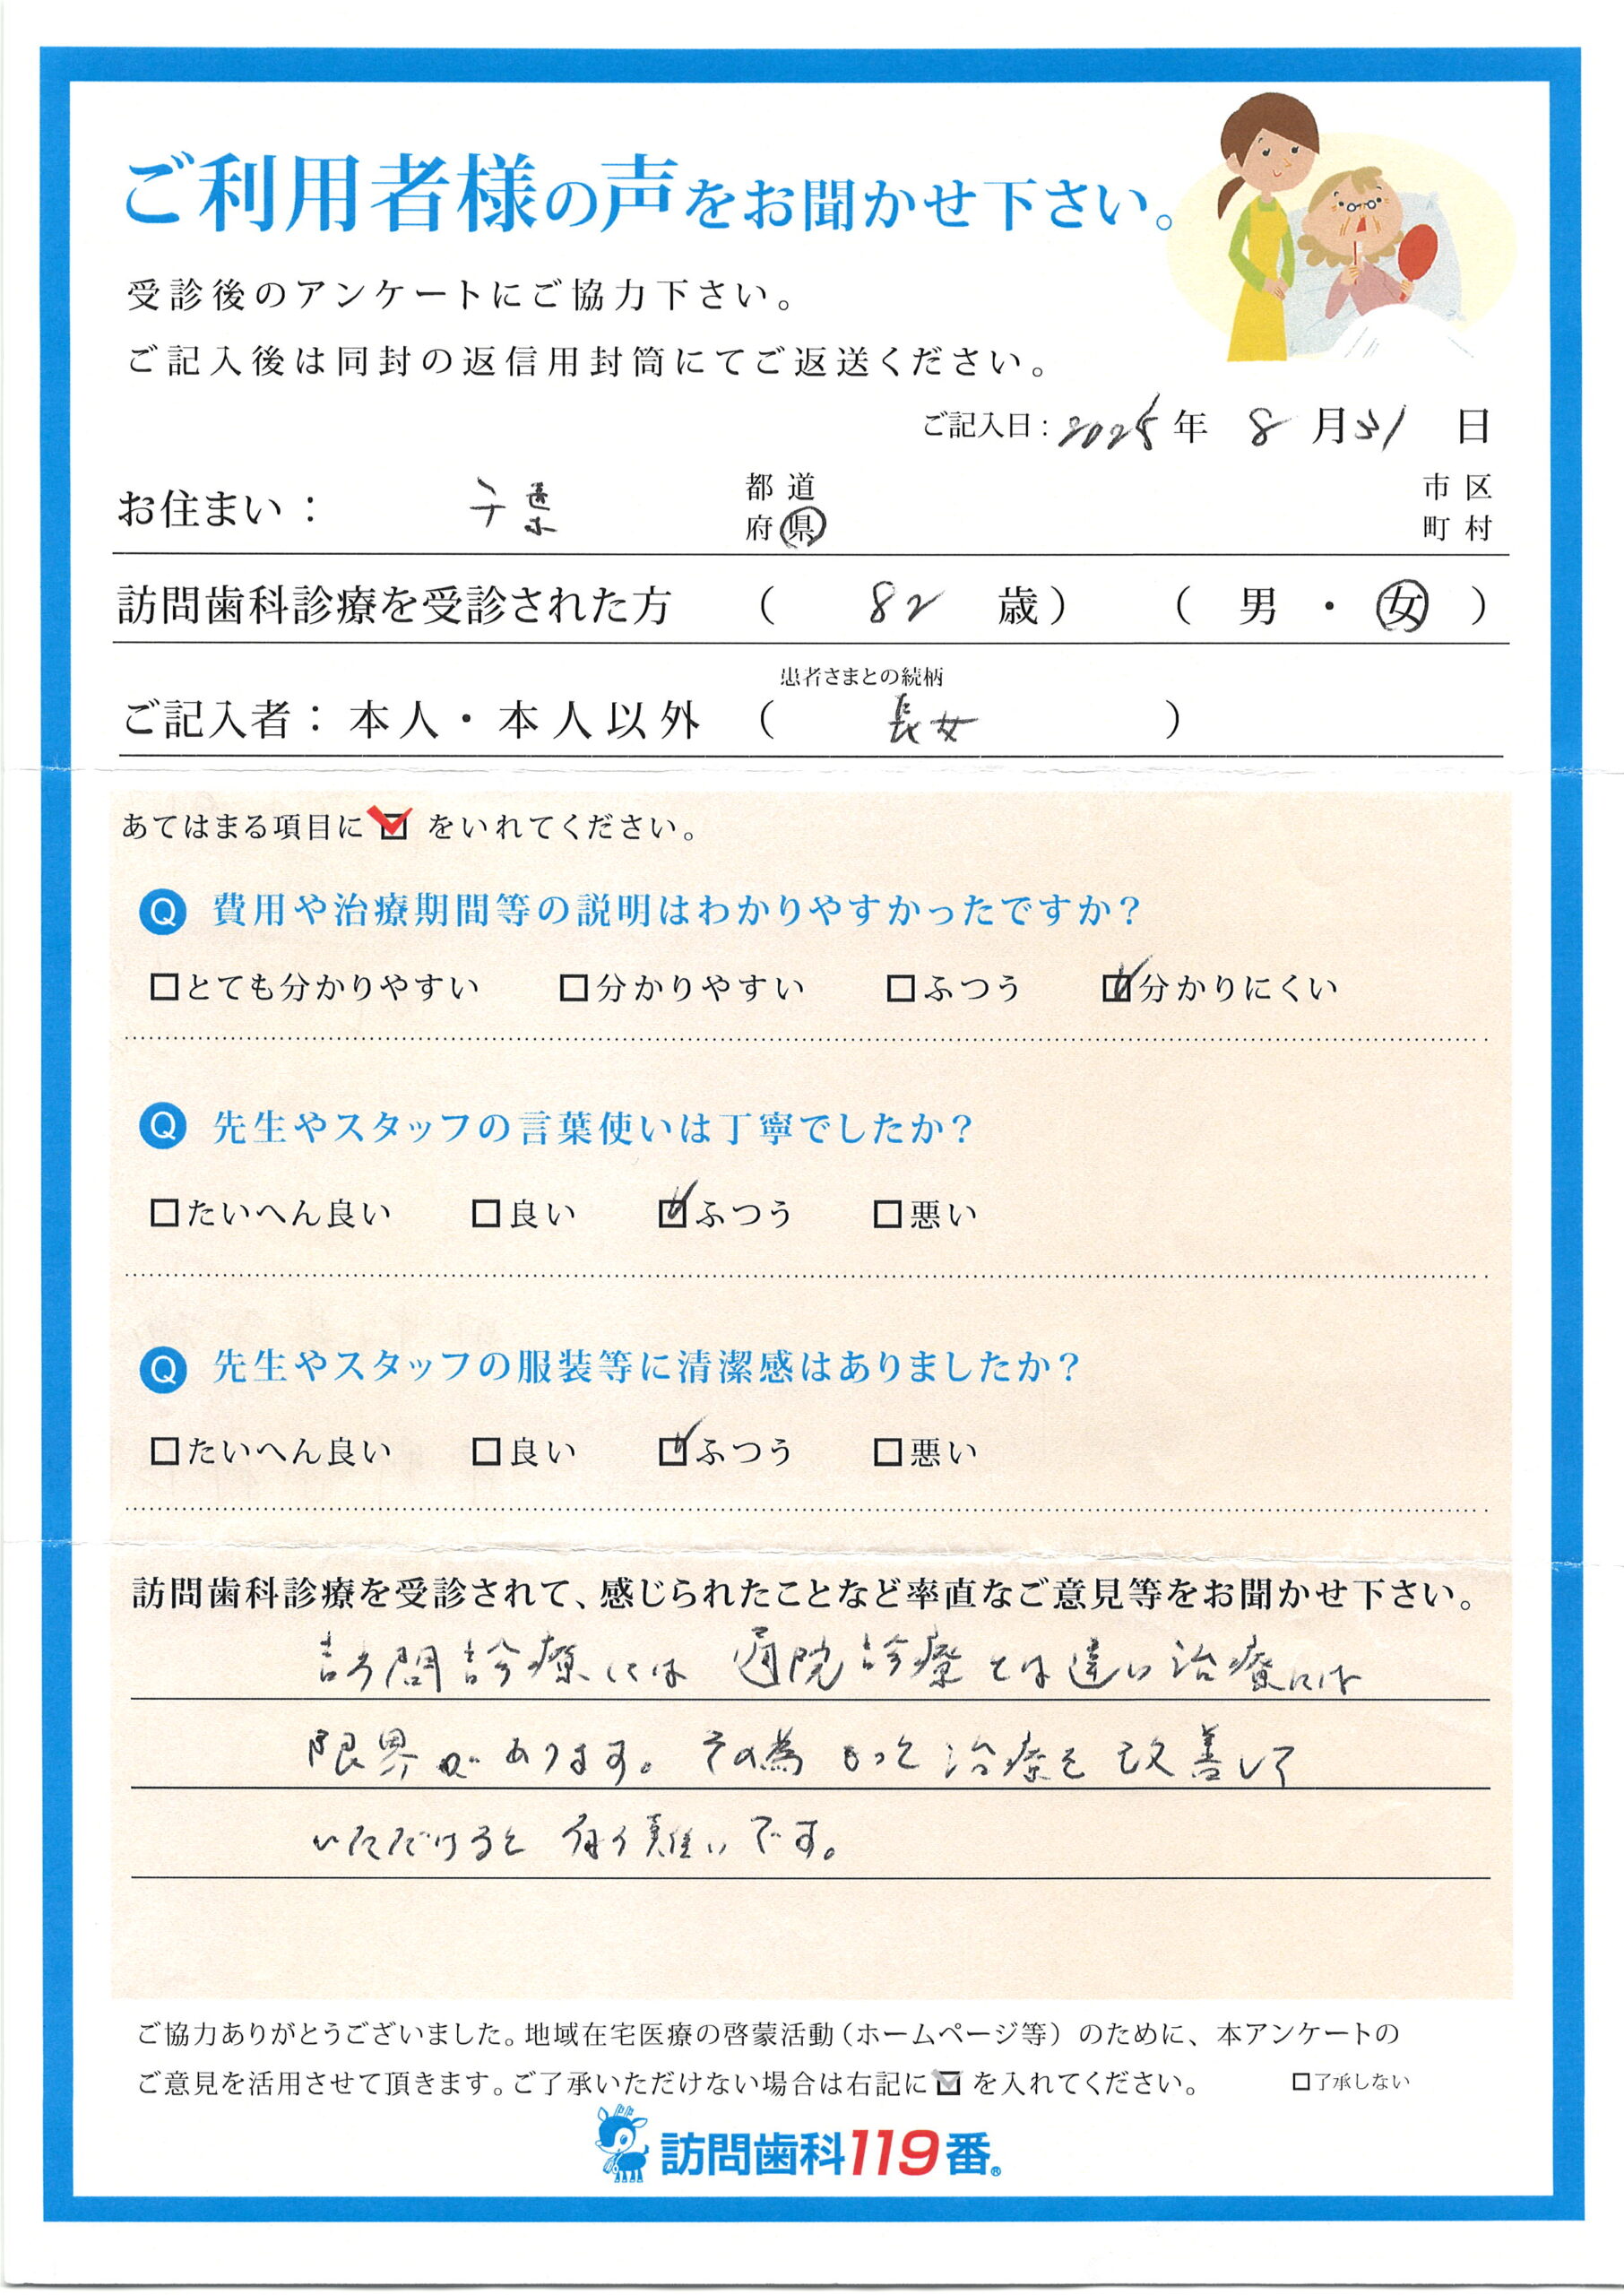 ご利用者様の声をお聞かせ下さい。
受診後のアンケートにご協力下さい。
ご記入後は同封の返信用封筒にてご返送ください。
ご記入日：2025年 8月31日
お住まい： 千葉 都道府県 市区町村
訪問歯科診療を受診された方 （ 82 歳） （ 男 ・ 女 ）
患者さまとの続柄
ご記入者：本人・本人以外 （ 長女 ）
あてはまる項目に☑をいれてください。
Q 費用や治療期間等の説明はわかりやすかったですか？
□とても分かりやすい □分かりやすい □ふつう ☑分かりにくい
Q 先生やスタッフの言葉使いは丁寧でしたか？
□たいへん良い □良い ☑ふつう □悪い
Q 先生やスタッフの服装等に清潔感はありましたか？
□たいへん良い □良い ☑ふつう □悪い
訪問歯科診療を受診されて、感じられたことなど率直なご意見等をお聞かせ下さい。
訪問診療には 通院診療とは違い治療には
限界があります。その為もっと治療を改善して
いただけると有り難いです。
ご協力ありがとうございました。地域在宅医療の啓蒙活動（ホームページ等）のために、本アンケートの
ご意見を活用させて頂きます。ご了承いただけない場合は右記に☑を入れてください。 □了承しない
訪問歯科119番®